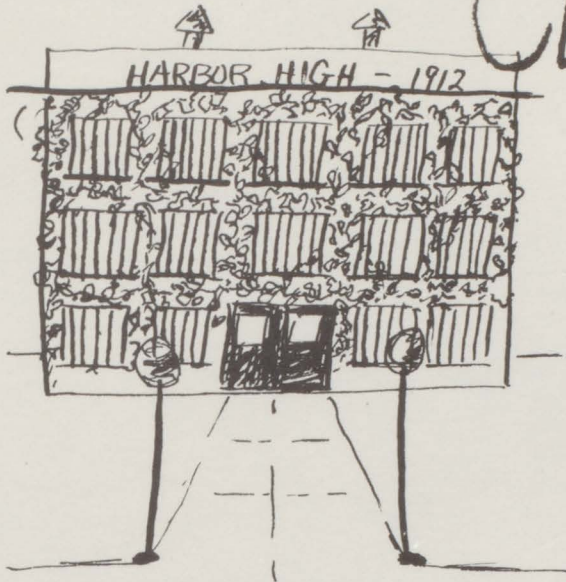 HARBOR HIGH - 1912